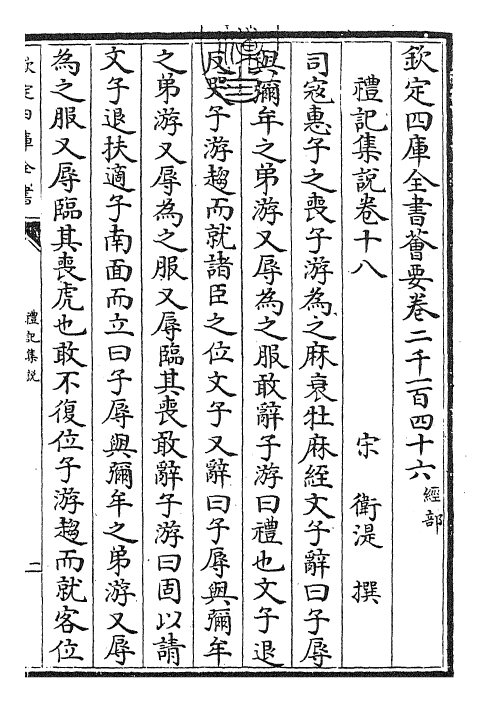 欽定四庫全書薈要卷二千一百四十六 經部
禮記集說卷十八
宋 衛湜 撰
司寇惠子之喪子游為之麻衰牡麻絰文子辭曰子辱
與彌牟之弟游又辱為之服敢辭子游曰禮也文子退
反哭子游趨而就諸臣之位文子又辭曰子辱與彌牟
之弟游又辱為之服又辱臨其喪敢辭子游曰固以請
文子退扶適子南面而立曰子辱與彌牟之弟游又辱
為之服又辱臨其喪虎也敢不復位子游趨而就客位
欽定四庫全書
禮記集說
二